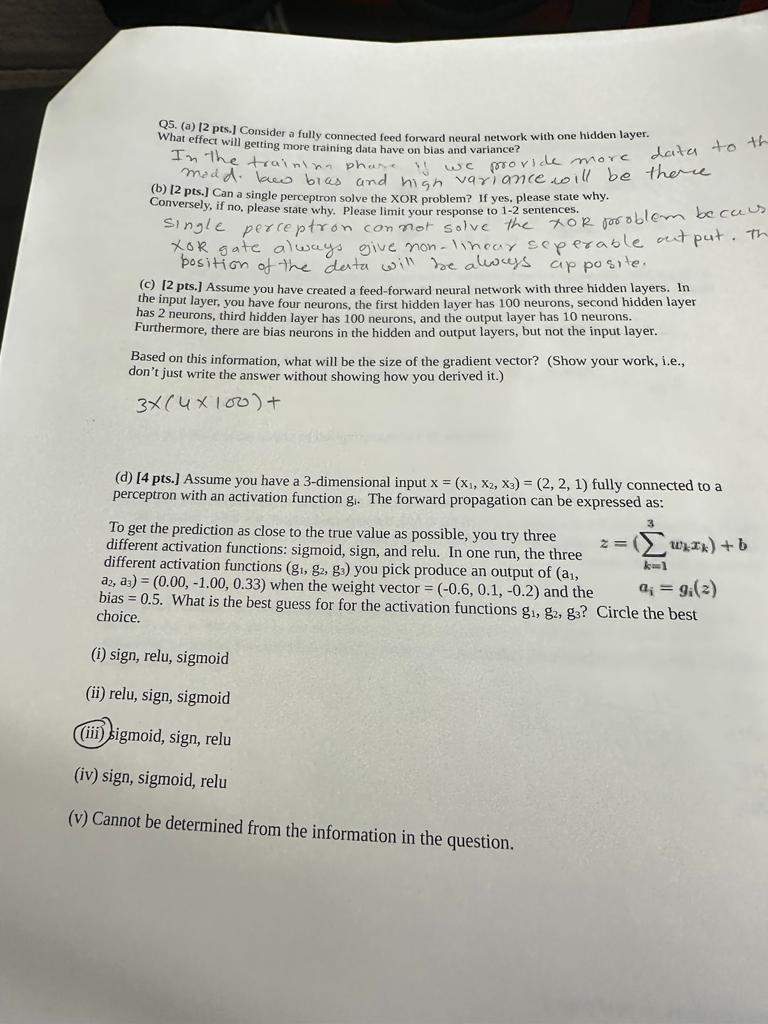 Q5. (a) [2 pts.] Consider a fully connected feed forward neural network with one hidden layer.
What effect will getting more training data have on bias and variance?
In the training phase if we provide more data to th
bias and high variance will be there
(b) [2 pts.] Can a single perceptron solve the XOR problem? If yes, please state why.
Conversely, if no, please state why. Please limit your response to 1-2 sentences.
Single perceptron can not solve the XOR problem becaus
XOR gate always give non-linear seperable output. Th
position of the data will be always apposite.
(c) [2 pts.] Assume you have created a feed-forward neural network with three hidden layers. In
the input layer, you have four neurons, the first hidden layer has 100 neurons, second hidden layer
has 2 neurons, third hidden layer has 100 neurons, and the output layer has 10 neurons.
Furthermore, there are bias neurons in the hidden and output layers, but not the input layer.
Based on this information, what will be the size of the gradient vector? (Show your work, i.e.,
don't just write the answer without showing how you derived it.)
3×(4×100)+
(d) [4 pts.] Assume you have a 3-dimensional input x = (x₁, x₂, x₃) = (2, 2, 1) fully connected to a
perceptron with an activation function gᵢ. The forward propagation can be expressed as:
To get the prediction as close to the true value as possible, you try three
different activation functions: sigmoid, sign, and relu. In one run, the three
different activation functions (g₁, g₂, g₃) you pick produce an output of (a₁,
a₂, a₃) = (0.00, -1.00, 0.33) when the weight vector = (-0.6, 0.1, -0.2) and the
bias = 0.5. What is the best guess for for the activation functions g₁, g₂, g₃? Circle the best
choice.
z = (∑³ₖ₌₁ wₖxₖ) + b
aᵢ = gᵢ(z)
(i) sign, relu, sigmoid
(ii) relu, sign, sigmoid
(iii) sigmoid, sign, relu
(iv) sign, sigmoid, relu
(v) Cannot be determined from the information in the question.